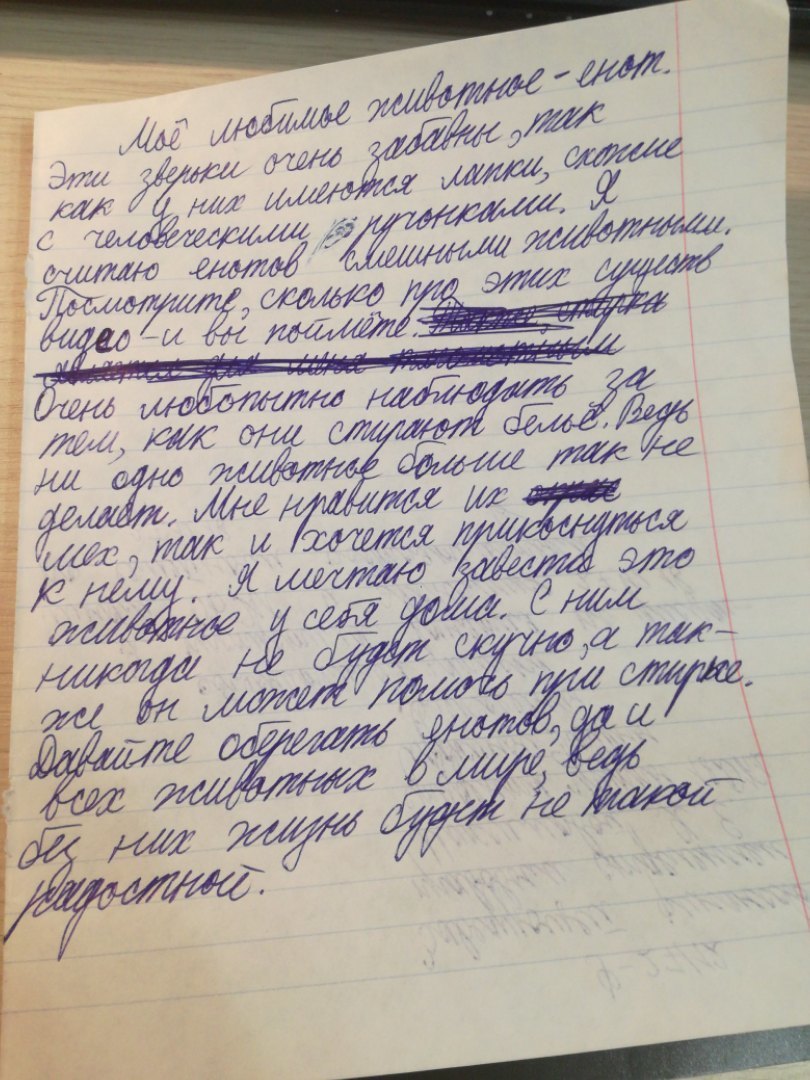 Моё любимое животное - енот.
Эти зверьки очень забавны, так
как у них имеются лапки, схожие
с человеческими ручонками. Я
считаю енотов смешными животными.
Посмотрите, сколько про этих существ
видео - и вы поймёте.
Очень любопытно наблюдать за
тем, как они стирают бельё. Ведь
ни одно животное больше так не
делает. Мне нравится их
мех, так и хочется прикоснуться
к нему. Я мечтаю завести это
животное у себя дома. С ним
никогда не будет скучно, а так-
же он может помочь при стирке.
Давайте оберегать енотов, да и
всех животных в мире, ведь
без них жизнь будет не такой
радостной.